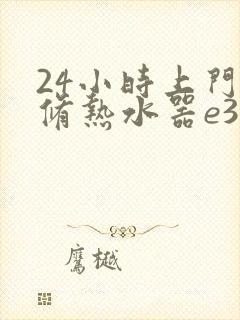 24小時上門
脩熱水器e3
鷹樾